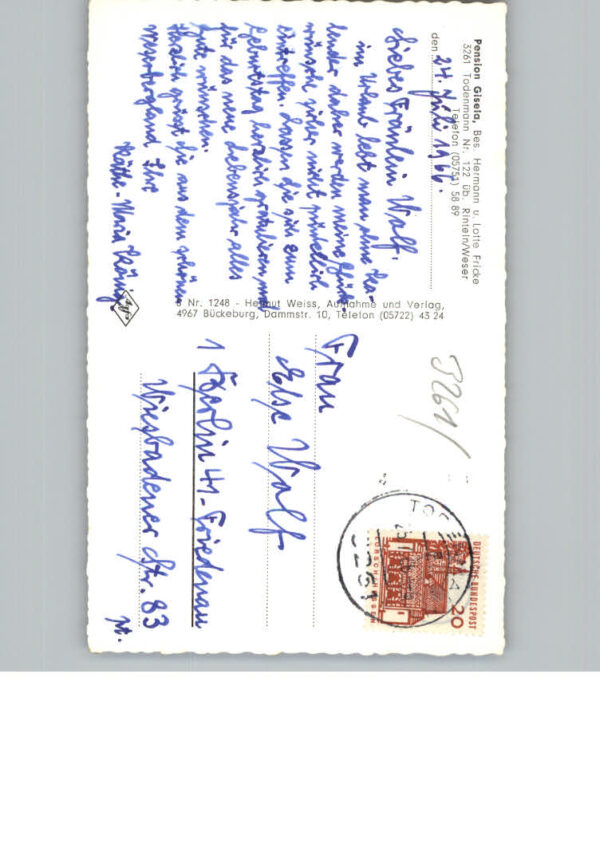 Pension Gisela, Bes. Hermann u. Lotte Fricke
3261 Todenmann Nr. 122 üb. Rinteln/Weser
Telefon (05751) 58 89
den 24. Juli 1966.
Liebes Fräulein Wolf,
im Urlaub lebt man ohne Ka-
lender daher werden meine Glück-
wünsche sicher nicht pünktlich
eintreffen. Lassen Sie sich zum
Geburtstag herzlich gratulieren und
für das neue Lebensjahr alles
Gute wünschen.
Herzlich grüsst Sie aus dem schönen
Weserbergland Ihre
Käthe-Maria König
6 Nr. 1248 - Helmut Weiss, Aufnahme und Verlag,
4967 Bückeburg, Dammstr. 10, Telefon (05722) 43 24
3261/
DEUTSCHE BUNDESPOST
20
3261
Frau
Else Wolf
1 Berlin 41-Friedenau
Wiesbadener Str. 83